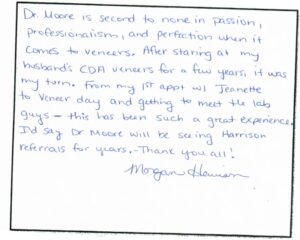 Dr. Moore is second to none in passion,
professionalism, and perfection when it
comes to veneers. After staring at my
husband's CDA veneers for a few years, it was
my turn. From my 1st appt w/ Jeanette
to veneer day and getting to meet the lab
guys – this has been such a great experience.
I'd say Dr Moore will be seeing Harrison
referrals for years. -Thank you all!
Morgan Harrison